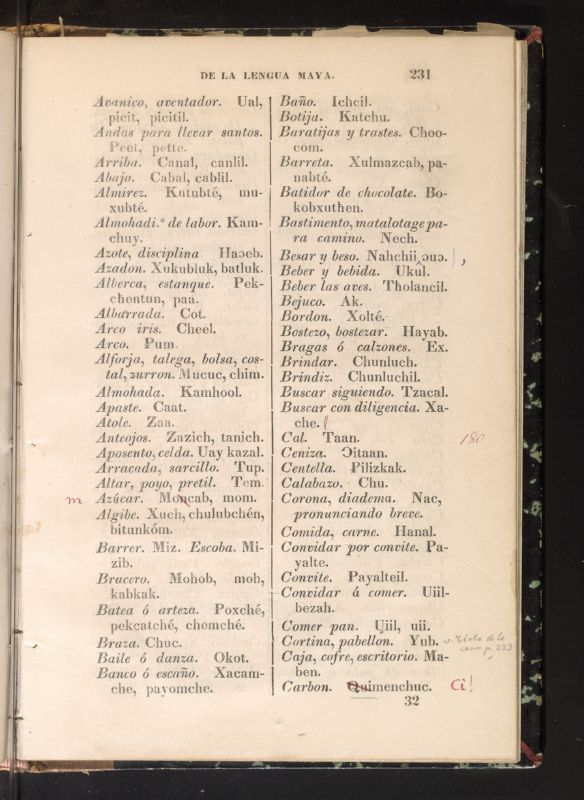 DE LA LENGUA MAYA. 231
Avanico, aventador. Ual,
picit, picitil.
Andas para llevar santos.
Peet, pette.
Arriba. Canal, canlil.
Abajo. Cabal, cablil.
Almirez. Kutubté, mu-
xubté.
Almohadi.ª de labor. Kam-
chuy.
Azote, disciplina Haɔeb.
Azadon. Xukubluk, batluk.
Alberca, estanque. Pek-
chentun, paa.
Albarrada. Cot.
Arco iris. Cheel.
Arco. Pum.
Alforja, talega, bolsa, cos-
tal, zurron. Mucuc, chim.
Almohada. Kamhool.
Apaste. Caat.
Atole. Zaa.
Anteojos. Zazich, tanich.
Aposento, celda. Uay kazal.
Arracada, sarcillo. Tup.
Altar, poyo, pretil. Tem.
m Azúcar. Moncab, mom.
Algibe. Xuch, chulubchén,
bitunkóm.
Barrer. Miz. Escoba. Mi-
zib.
Bracero. Mohob, moh,
kabkak.
Batea ó arteza. Poxché,
pekcatché, chemché.
Braza. Chuc.
Baile ó danza. Okot.
Banco ó escaño. Xacam-
che, payomche.
Baño. Ichcil.
Botija. Katchu.
Baratijas y trastes. Choo-
com.
Barreta. Xulmazcab, pa-
nabté.
Batidor de chocolate. Bo-
kobxuthen.
Bastimento, matalotage pa-
ra camino. Nech.
Besar y beso. Nahchii ɔuɔ.
Beber y bebida. Ukul.
Beber las aves. Tholancil.
Bejuco. Ak.
Bordon. Xolté.
Bostezo, bostezar. Hayab.
Bragas ó calzones. Ex.
Brindar. Chunluch.
Brindiz. Chunluchil.
Buscar siguiendo. Tzacal.
Buscar con diligencia. Xa-
che.
Cal. Taan. 180
Ceniza. Ɔitaan.
Centella. Pilizkak.
Calabazo. Chu.
Corona, diadema. Nac,
pronunciando breve.
Comida, carne. Hanal.
Convidar por convite. Pa-
yalte.
Convite. Payalteil.
Convidar á comer. Uiil-
bezah.
Comer pan. Uiil, uii.
Cortina, pabellon. Yub. v. Cielo de la
cama p. 233
Caja, cofre, escritorio. Ma-
ben.
Carbon. Quimenchuc. Ci!
32